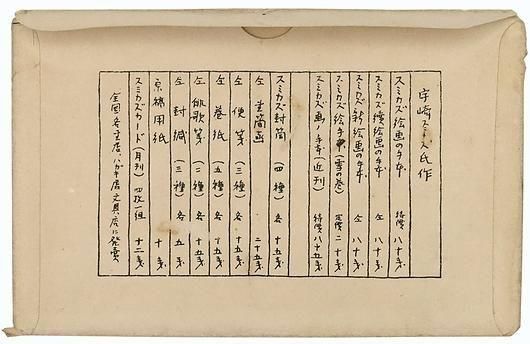 宇崎スミカズ氏作
スミカズ絵画の手本 特價 八十銭
スミカズ續絵画の手本 仝 八十銭
スミカズ新絵画の手本 仝 八十銭
スミカズ絵手本(雪の巻) 定價 二十銭
スミカズ画ノ手本(近刊) 特價 八十五銭
スミカズ封筒(四種)各 十五銭
仝 書簡函 二十五銭
仝 便箋(三種)各 十五銭
仝 巻紙(五種)各 十五銭
仝 俳歌箋(二種)各 十五銭
仝 封緘(三種)各 五銭
原稿用紙 十銭
スミカズカード(月刊)四枚一組 十二銭
全国各書店、ハガキ店文具店に発売